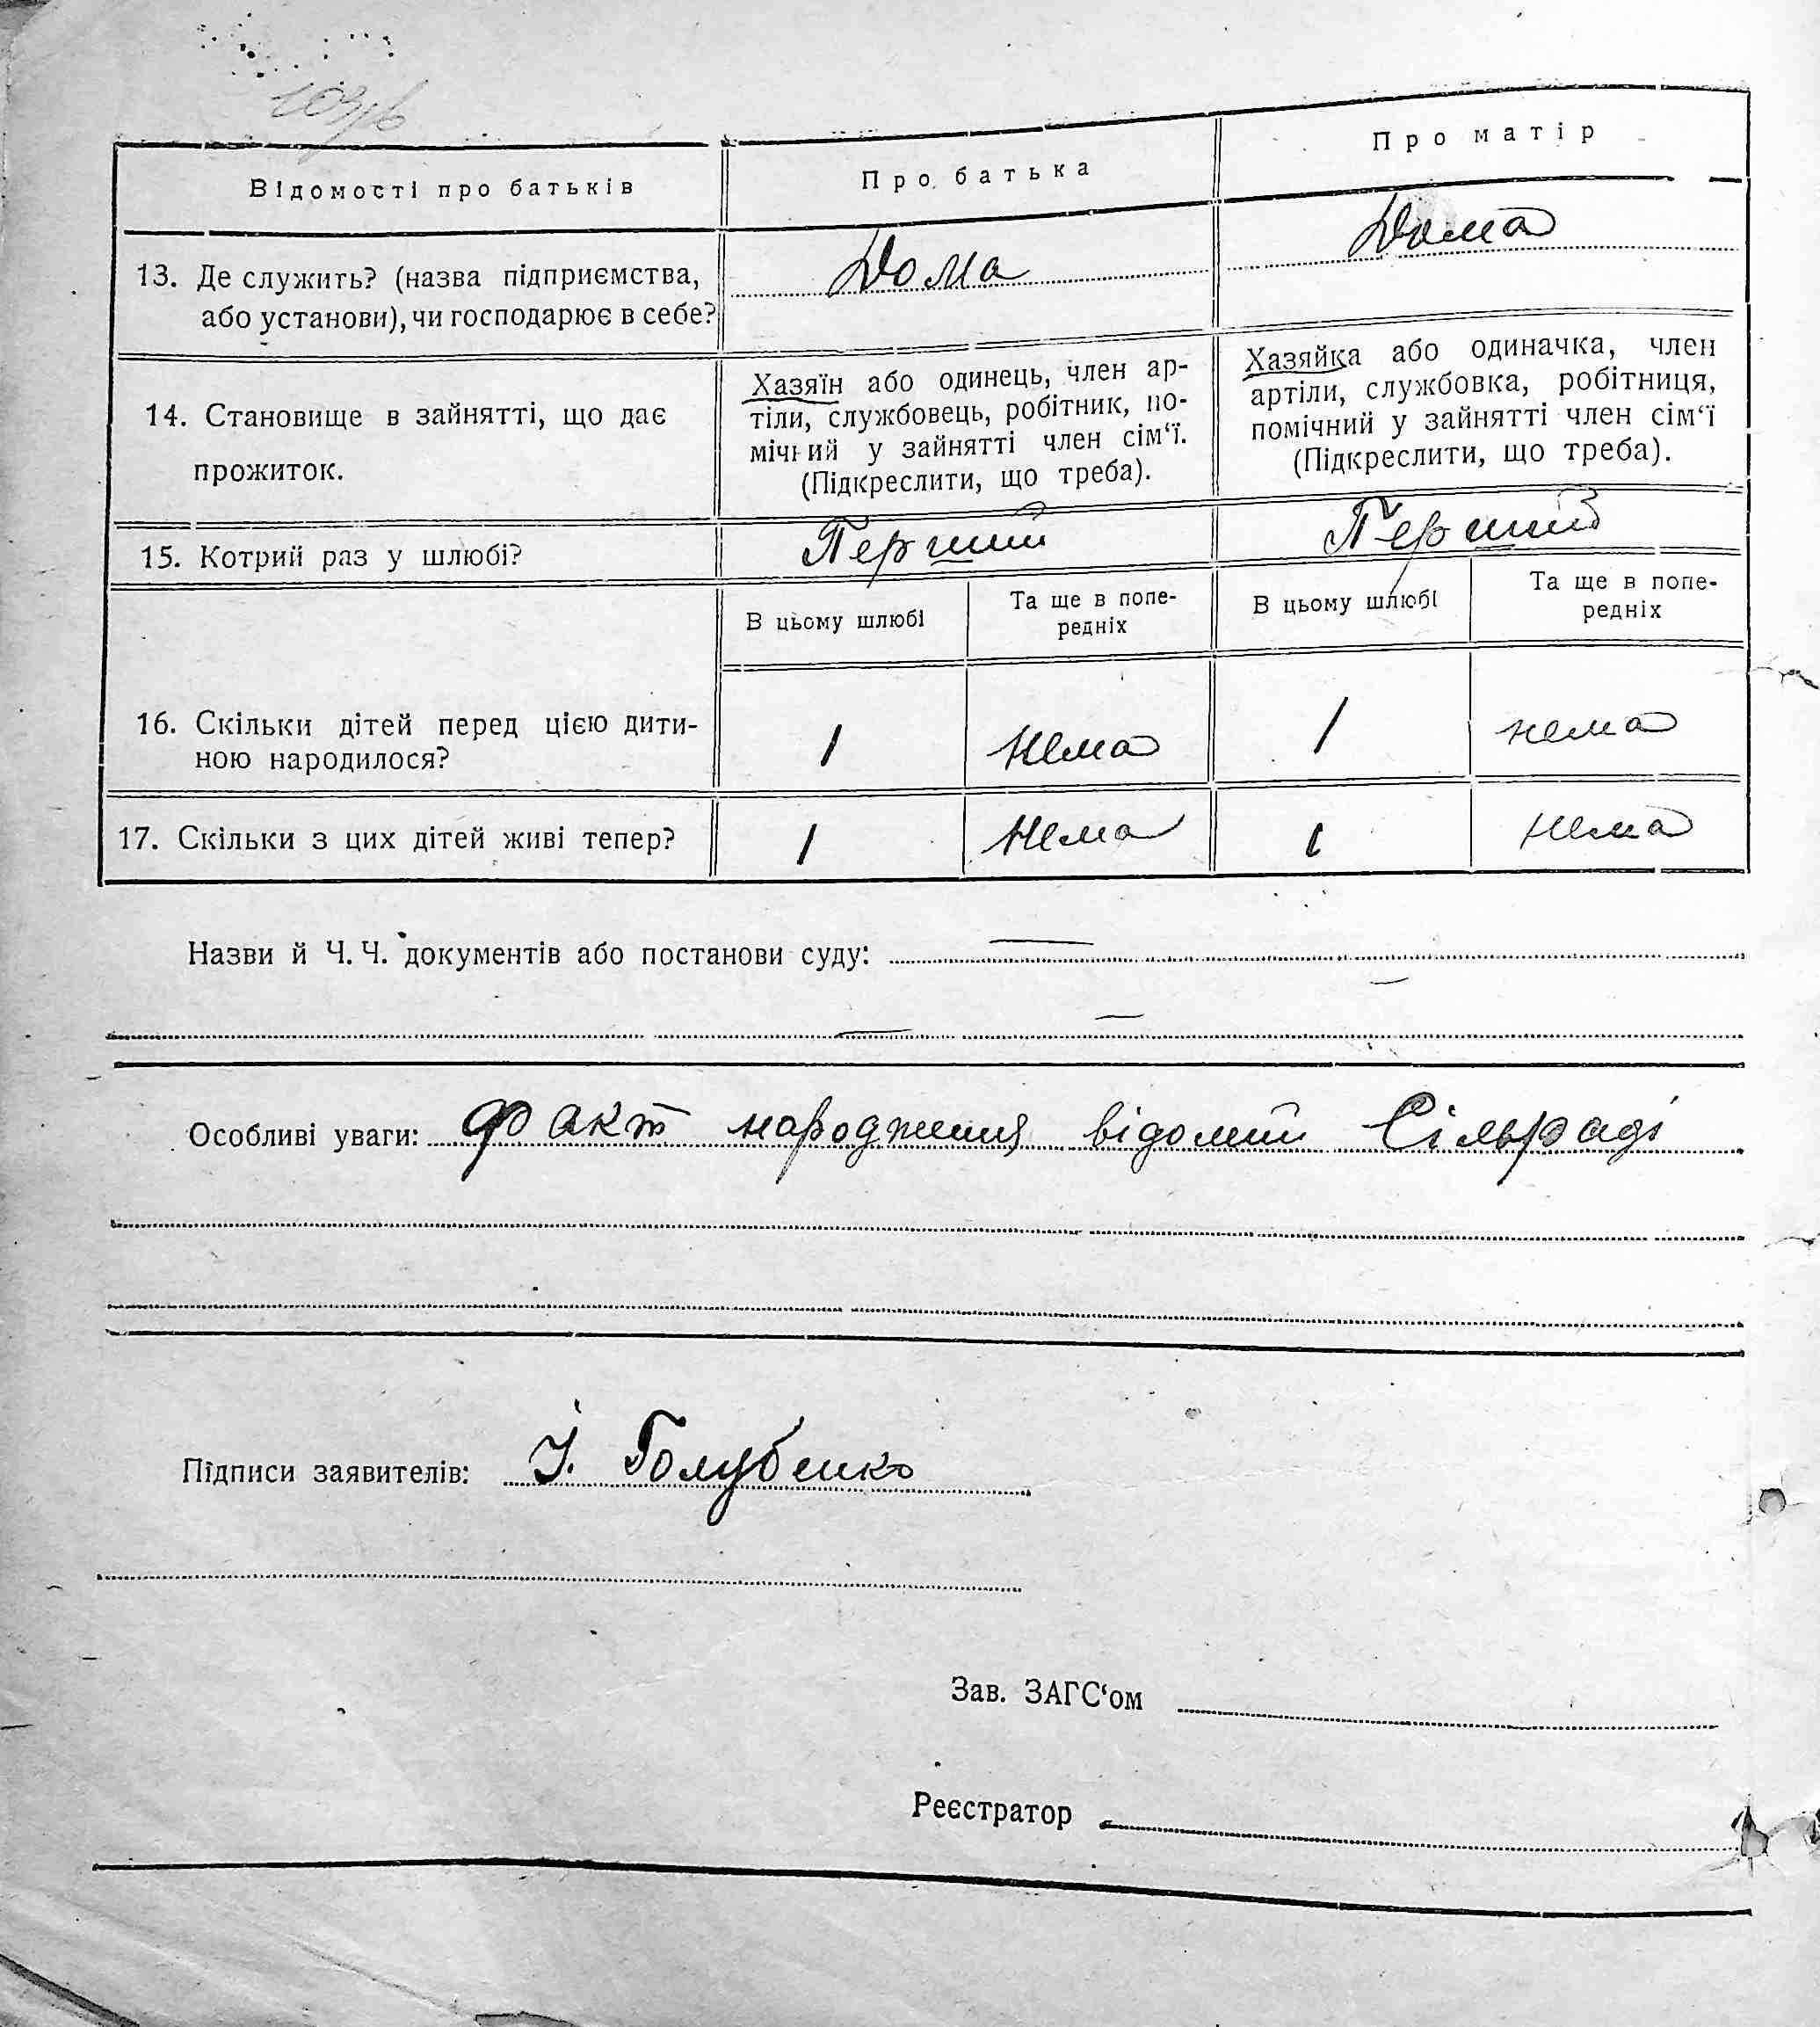 Відомості про батьків
Про батька
Про матір
13. Де служить? (назва підприємства,
або установи), чи господарює в себе?
Дома
Дома
14. Становище в зайнятті, що дає
прожиток.
Хазяїн або одинець, член ар-
тіли, службовець, робітник, по-
мічний у зайнятті член сім‘ї.
(Підкреслити, що треба).
Хазяйка або одиначка, член
артіли, службовка, робітниця,
помічний у зайнятті член сім‘ї
(Підкреслити, що треба).
15. Котрий раз у шлюбі?
Перший
Перший
В цьому шлюбі
Та ще в попе-
редніх
В цьому шлюбі
Та ще в попе-
редніх
16. Скільки дітей перед цією дити-
ною народилося?
1
нема
1
нема
17. Скільки з цих дітей живі тепер?
1
нема
1
нема
Назви й Ч. Ч. документів або постанови суду:
Особливі уваги: Факт народження відомий Сільраді
Підписи заявителів: І. Голубенко
Зав. ЗАГС‘ом
Реєстратор